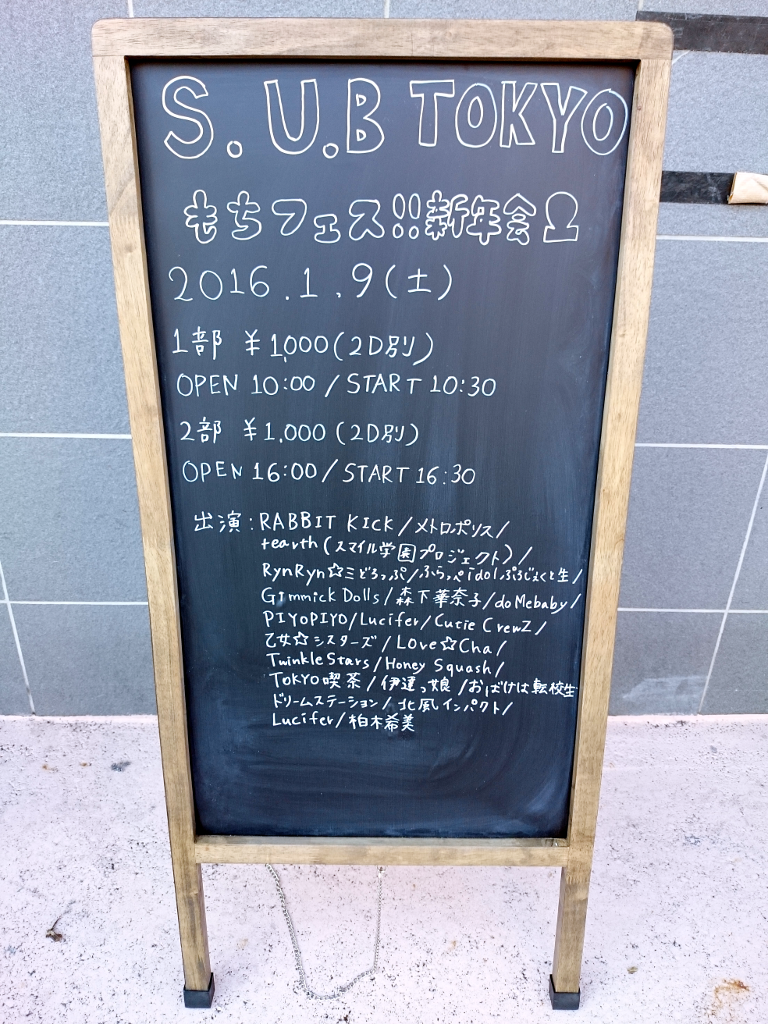 S.U.B TOKYO
もちフェス!!新年会
2016.1.9(土)
1部 ¥1,000(2D別)
OPEN 10:00/START 10:30
2部 ¥1,000(2D別)
OPEN 16:00/START 16:30
出演:RABBIT KICK/メトロポリス/
tearth(スマイル学園プロジェクト)/
RynRyn☆ミどろっぷ/ふらっぺidolぷろじぇくと生/
Gimmick Dolls/森下華奈子/do Mebaby/
PIYOPIYO/Lucifer/Cutie CrewZ/
乙女☆シスターズ/LOve☆Cha/
Twinkle Stars/Honey Squash/
TOKYO喫茶/伊達っ娘/おばけは転校生
ドリームステーション/北風インパクト/
Lucifer/柏木希美